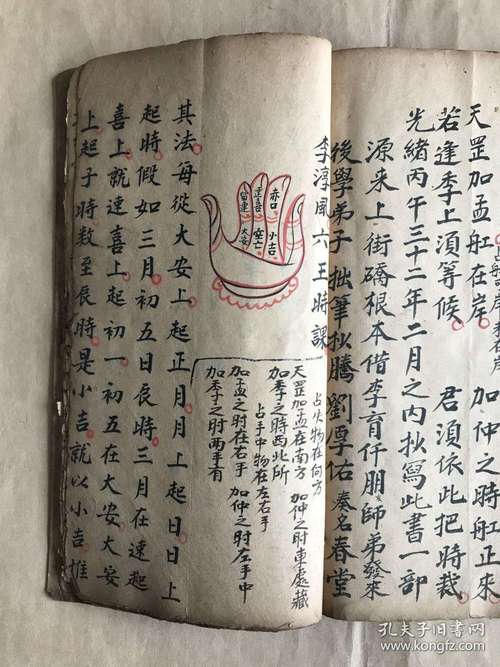 天罡加孟舡在岸 加仲之時舡正來
若逢季上須等候 君須依此把時裁
光緒丙午三十二年二月之内抄寫此書一部
源来上街礄根本借李育仟朋師弟發来
後學弟子拙筆抄騰劉厚佑奏名春堂
李淳風六壬時課
赤口
小吉
速喜
空亡
留連
大安
占失物在何方
天罡加孟在南方 加仲之时東處藏
加季之時西北所
占手中物在左右手
加孟之时在右手 加仲之时左手中
加季之时两手有
其法每從大安上起正月月上起日日上
起時假如三月初五日辰時三月在速起
喜上就速喜上起初一初五在大安大安
上起子時数至辰時是小吉就以小吉推
孔夫子旧书网
www.kongfz.com